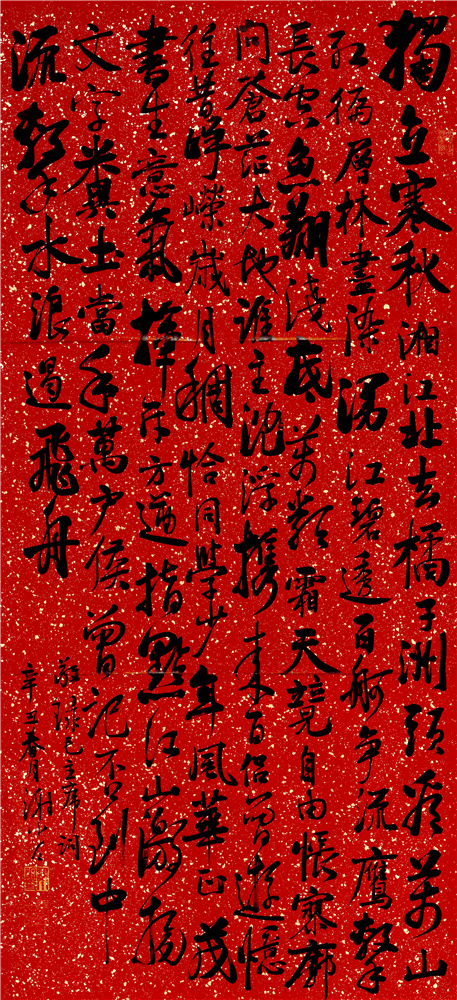 獨立寒秋湘江北去橘子洲頭看萬山
紅徧層林盡染漫江碧透百舸爭流鷹擊
長空魚翔淺底萬類霜天競自由悵寥廓
問蒼茫大地誰主沈浮攜來百侶曾遊憶
往昔崢嶸歲月稠恰同學少年風華正茂
書生意氣揮斥方遒指點江山激揚
文字糞土當年萬户侯曾記否到中
流擊水浪遏飛舟
敬録毛主席詞
辛丑春月謝